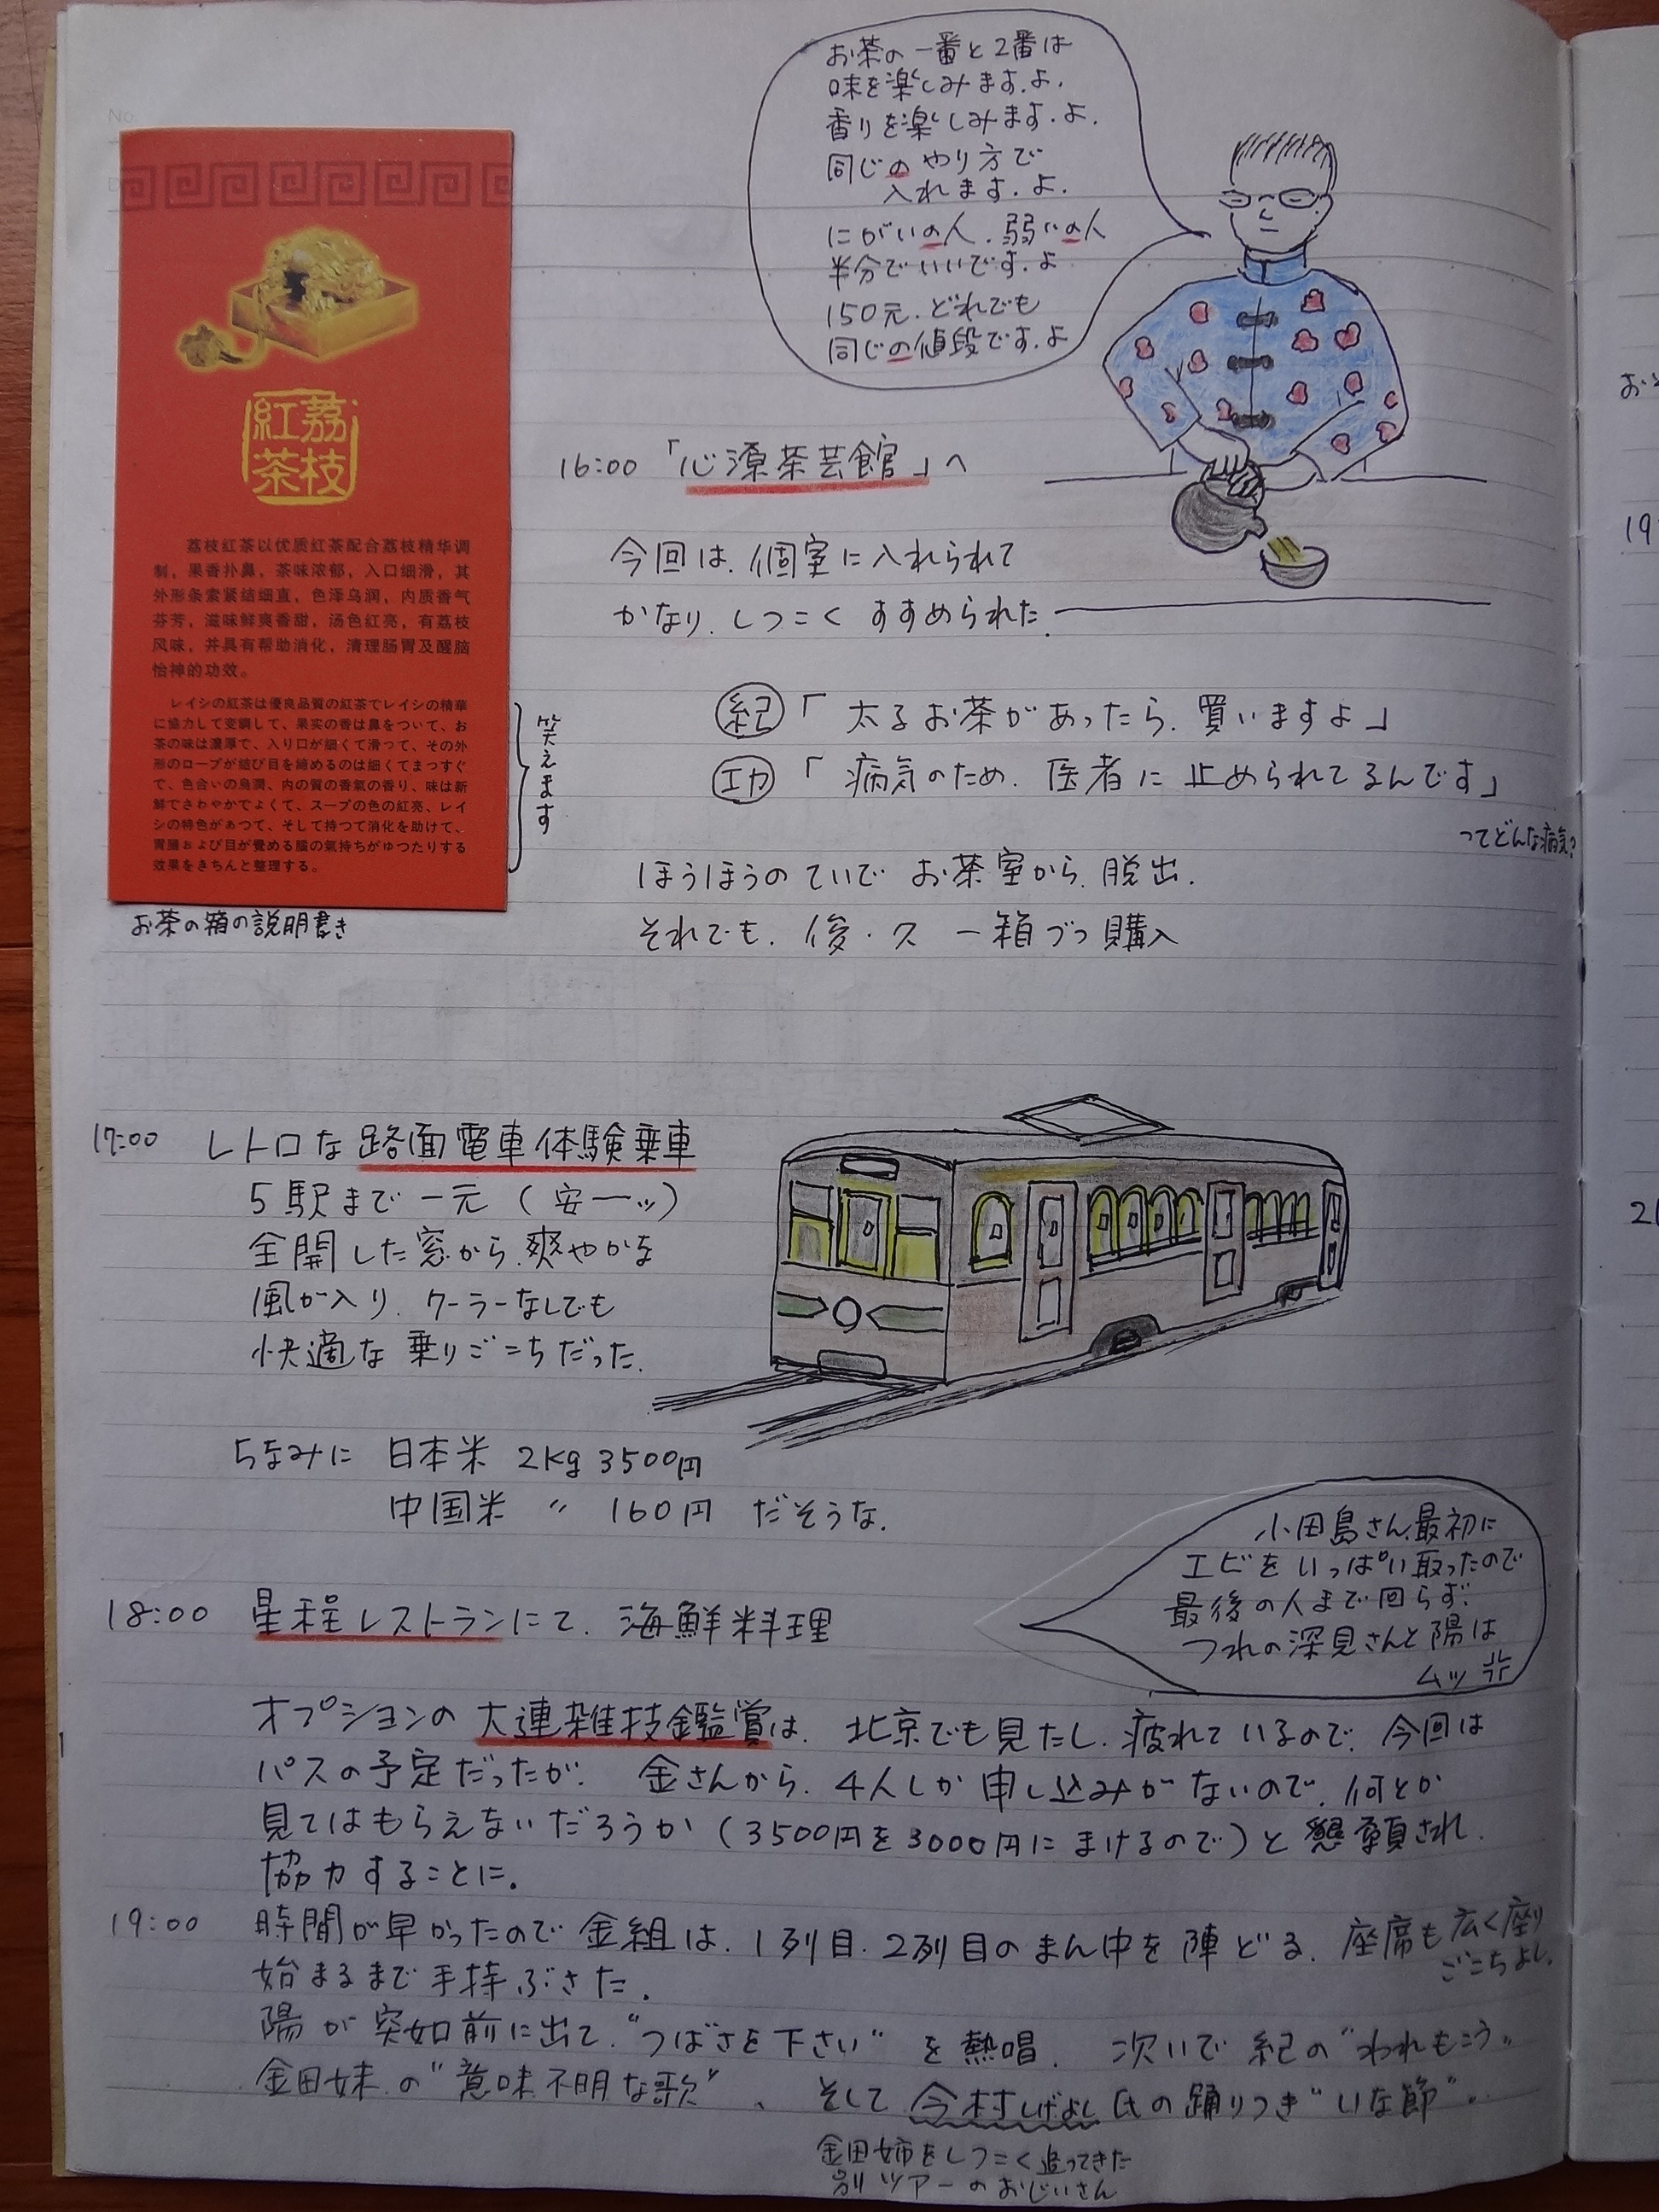 お茶の一番と2番は
味を楽しみます.よ.
香りを楽しみます.よ.
同じのやり方で
入れます.よ.
にがいの人.弱いの人
半分でいいです.よ
150元.どれでも
同じの値段です.よ
紅荔
茶枝
荔枝红茶以优质红茶配合荔枝精华调
制，果香扑鼻，茶味浓郁，入口细滑，其
外形条索紧结细直，色泽乌润，内质香气
芬芳，滋味鲜爽香甜，汤色红亮，有荔枝
风味，并具有帮助消化，清理肠胃及醒脑
怡神的功效。
レイシの紅茶は優良品質の紅茶でレイシの精華
に協力して変調して、果実の香は鼻をついて、お
茶の味は濃厚で、入り口が細くて滑って、その外
形のロープが結び目を締めるのは細くてまっすぐ
で、色合いの烏潤、内の質の香氣の香り、味は新
鮮でさわやかでよくて、スープの色の紅亮、レイ
シの特色があつて、そして持つて消化を助けて、
胃腸および目が覺める腦の氣持ちがゆつたりする
效果をきちんと整理する。
笑えます
お茶の箱の説明書き
16:00「心源茶芸館」へ
今回は.個室に入れられて
かなり.しつこく すすめられた.
紀「太るお茶があったら.買いますよ」
「病気のため.医者に止められてるんです」
ってどんな病気?
ほうほうのていで お茶室から.脱出.
それでも.俊・久 一箱づつ購入
17:00 レトロな路面電車体験乗車
5駅まで一元(安ーッ)
全開した窓から.爽やかな
風が入り.クーラーなしでも
快適な 乗りごこちだった.
ちなみに 日本米 2Kg 3500円
中国米 〃 160円 だそうな.
小田島さん.最初に
エビをいっぱい取ったので
最後の人まで回らず.
つれの深見さんと陽は
ムッ
18:00 星程レストランにて.海鮮料理
オプションの大連雑技鑑賞は.北京でも見たし.疲れているので.今回は
パスの予定だったが. 金さんから.4人しか申し込みがないので.何とか
見てはもらえないだろうか(3500円を3000円にまけるので)と懇願され.
協力することに.
19:00 時間が早かったので金組は.1列目.2列目のまん中を陣どる.座席も広く座り
ごこちよし.
始まるまで手持ぶさた.
陽が突如前に出て."つばさを下さい"を熱唱. 次いで紀の"われもこう"
金田妹の"意味不明な歌"、そして今村しげよし氏の踊りつき"いな節".
金田姉をしつこく追ってきた
別ツアーのおじいさん